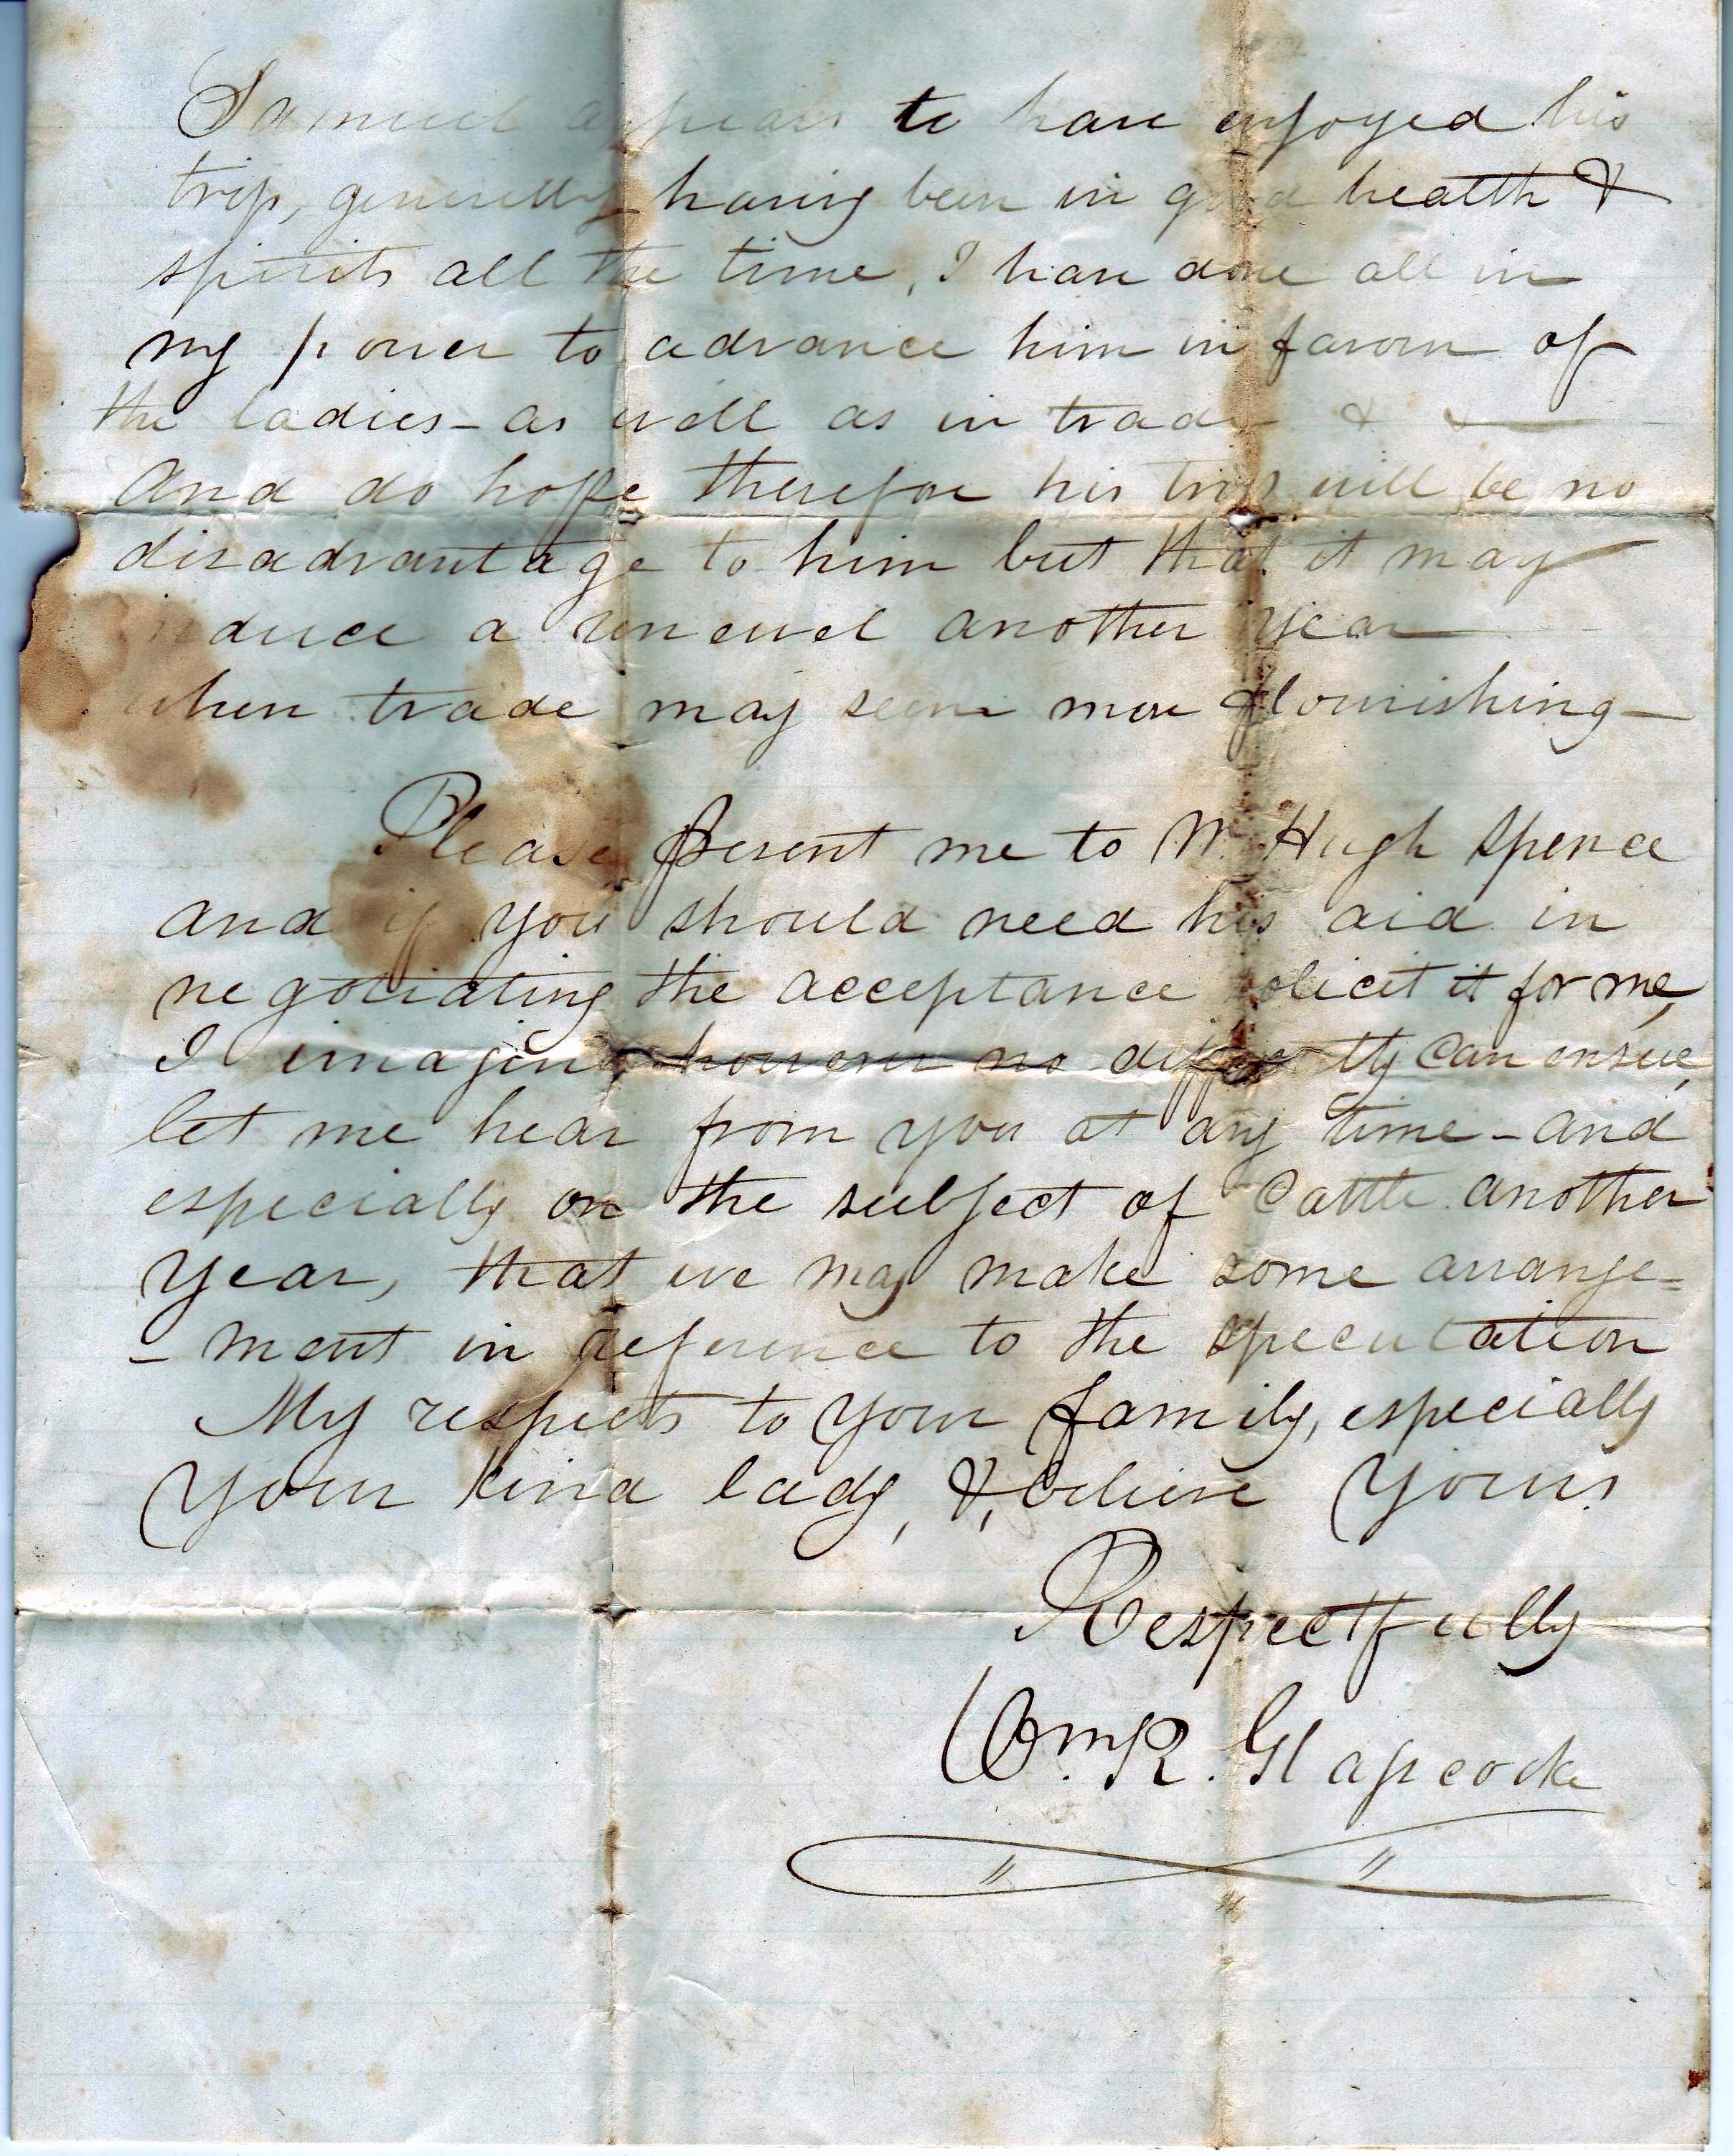 Samuel appears to have enjoyed his
trip, generally having been in good health &
spirits all the time, I have done all in
my power to advance him in favour of
the ladies - as well as in trade & &
And do hope therefore his trip will be no
disadvantage to him but that it may
induce a renewel another year
when trade may seem more flourishing -
Please present me to Mr. Hugh Spence
and if you should need his aid in
negotiating the acceptance solicit it for me,
I imagine however no difficulty can ensue,
let me hear from you at any time - and
especially on the subject of Cattle another
year, that we may make some arrange=
- ment in reference to the speculation
My respects to your family, especially
your kind lady, &, believe yours
Respectfully
Wm. R. Glascocke